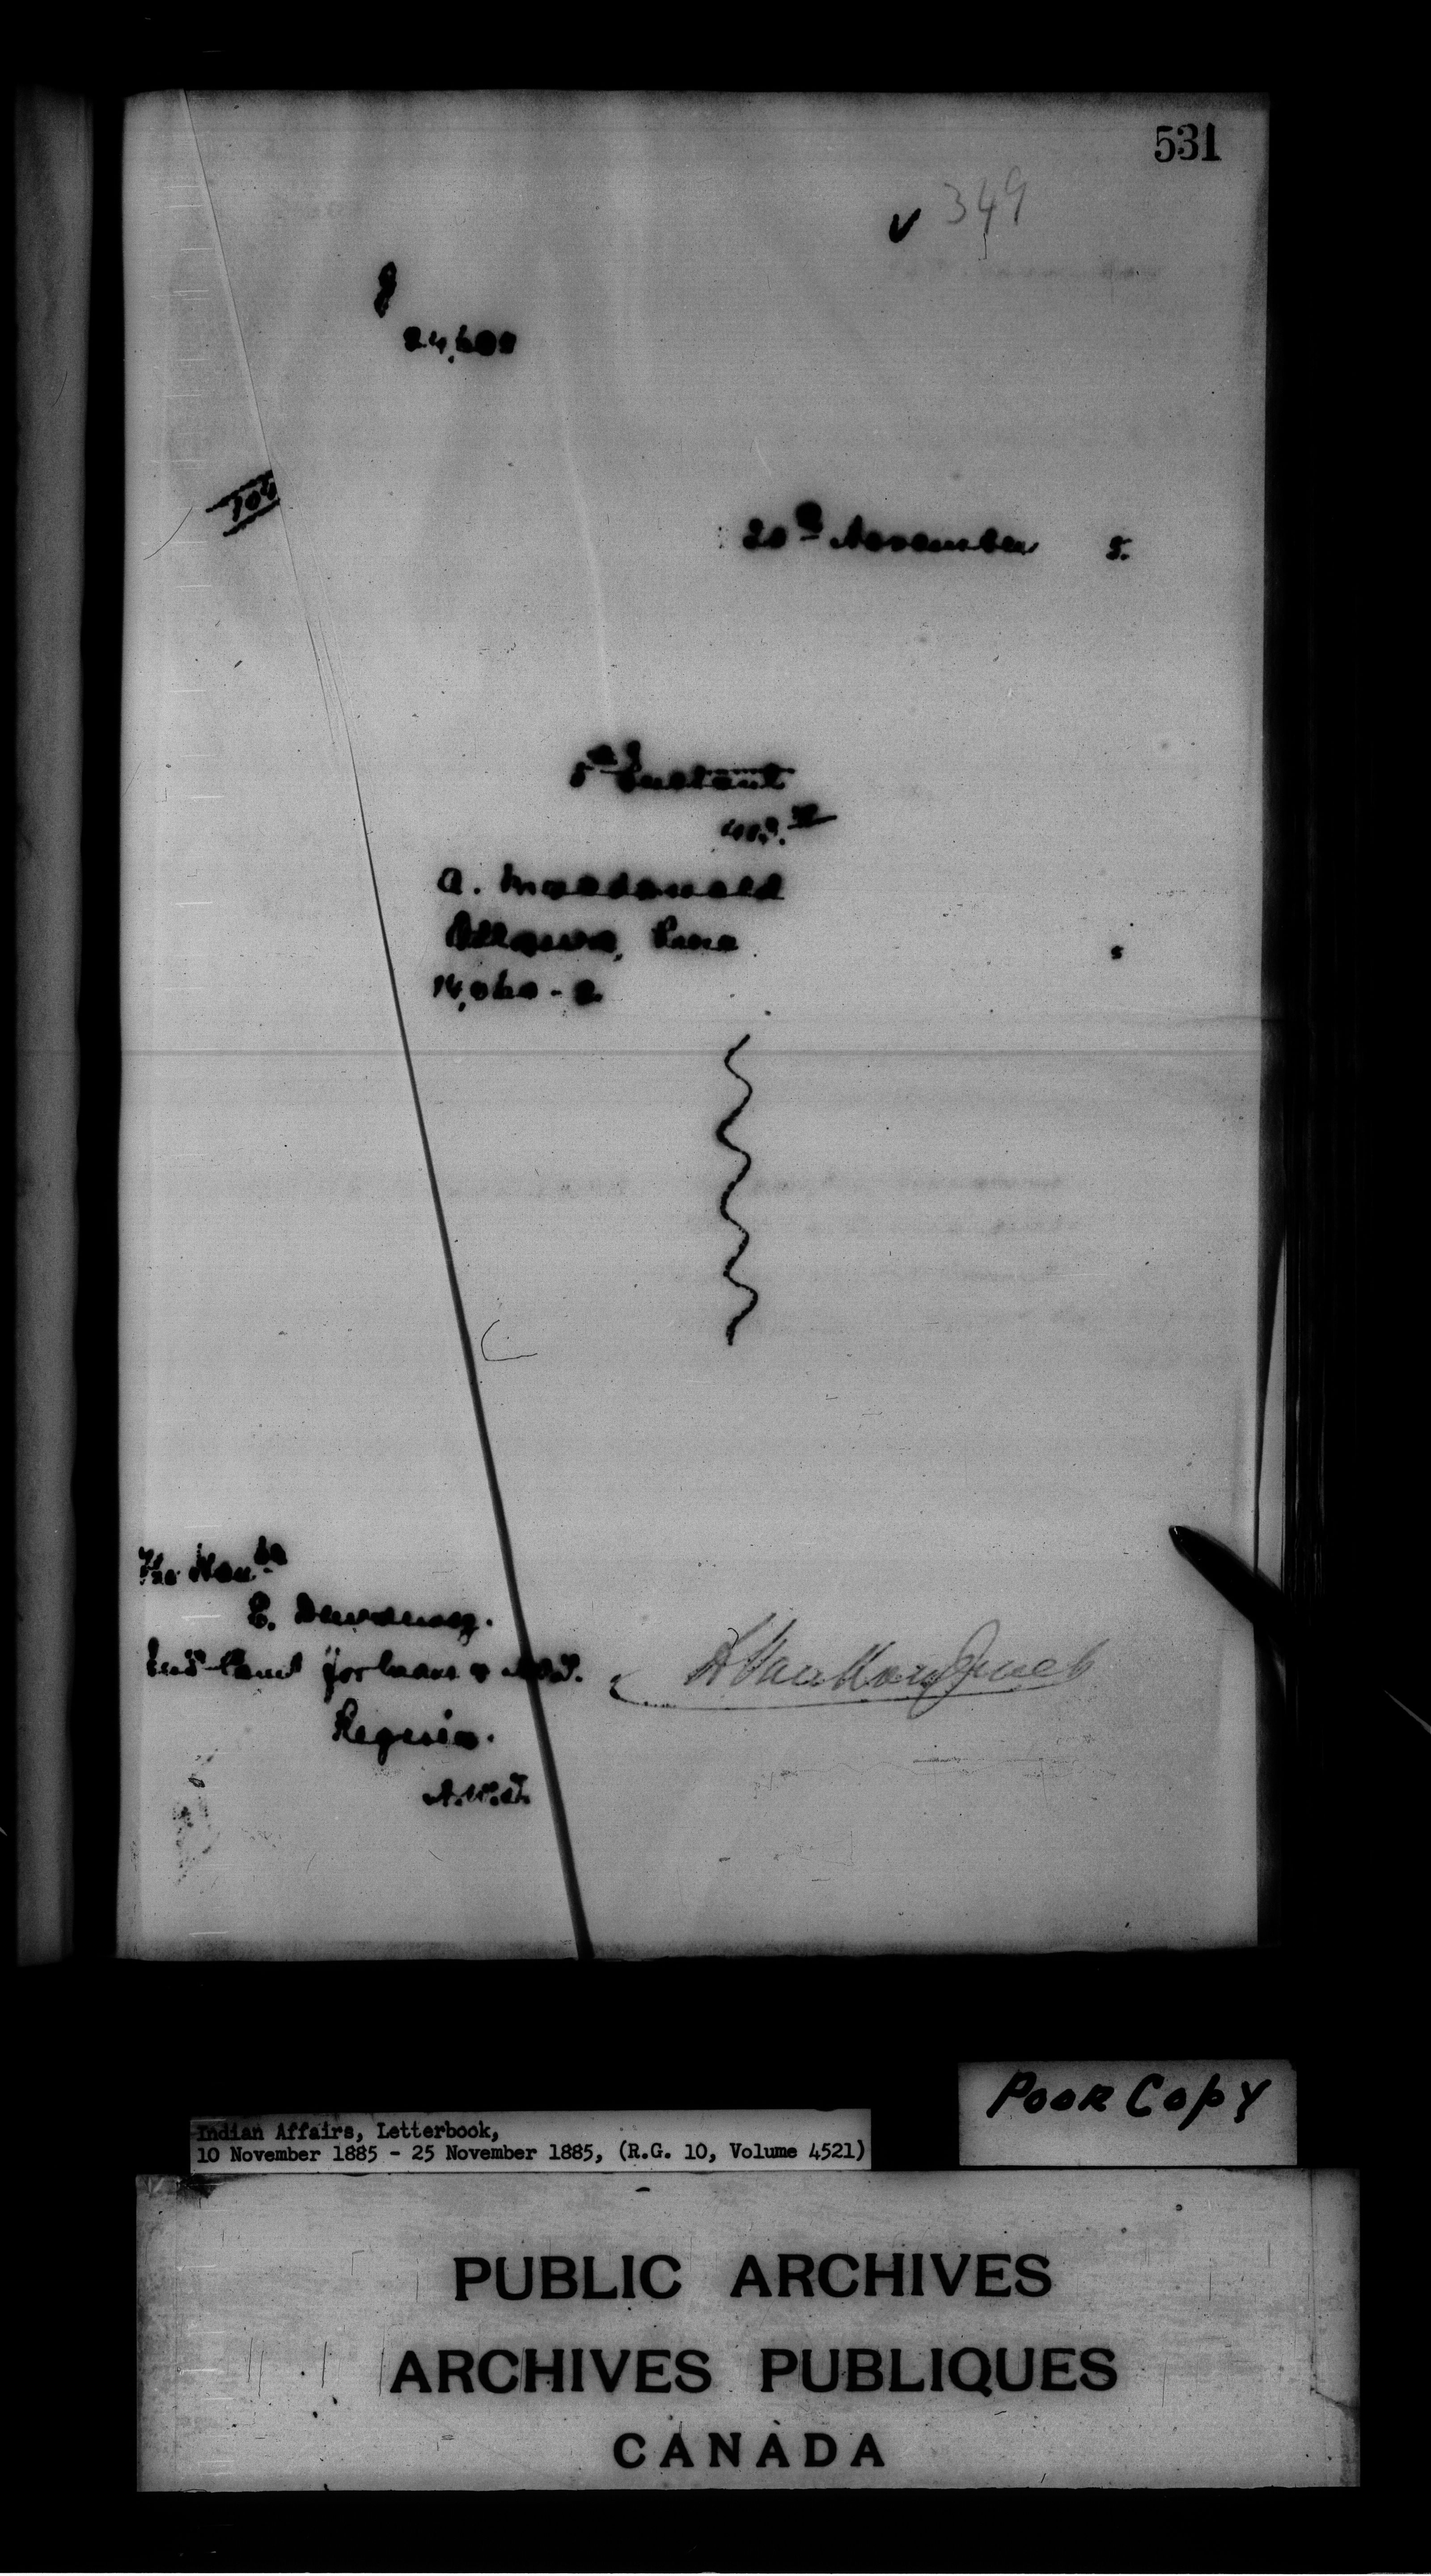 531
349
104
20th November 5.
5th Instant
A. Macdonald
Ottawa,
The Honble
E. Dewdney.
Ind Comr for Man & N.W.T.
Regina.
N.W.T.
L VanKoughnet
Poor Copy
Indian Affairs, Letterbook,
10 November 1885 - 25 November 1885, (R.G. 10, Volume 4521)
PUBLIC ARCHIVES
ARCHIVES PUBLIQUES
CANADA